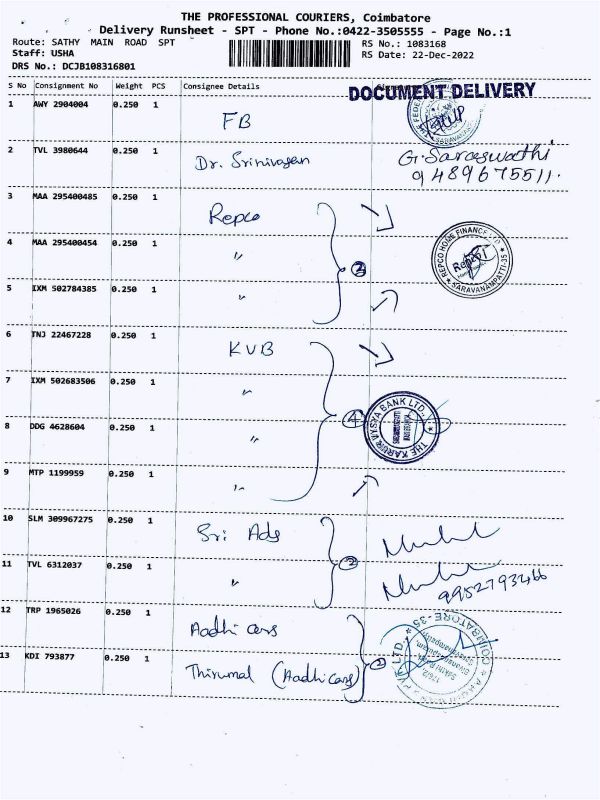 THE PROFESSIONAL COURIERS, Coimbatore
Delivery Runsheet - SPT - Phone No.:0422-3505555 - Page No.:1
Route: SATHY MAIN ROAD SPT
RS No.: 1083168
Staff: USHA
RS Date: 22-Dec-2022
DRS No.: DCJB108316801
S No Consignment No Weight PCS Consignee Details
DOCUMENT DELIVERY
1 AWY 2904004 0.250 1 FB
2 TVL 3980644 0.250 1 Dr. Srinivasan G. Saraswathi
9489675511.
3 MAA 295400485 0.250 1 Repco
4 MAA 295400454 0.250 1 〃
REPCO HOME FINANCE LTD
SARAVANAMPATTI-35
5 IXM 502784385 0.250 1 〃
6 TNJ 22467228 0.250 1 KVB
7 IXM 502683506 0.250 1 〃
④
THE KARUR VYSYA BANK LTD.,
8 DDG 4628604 0.250 1 〃
9 MTP 1199959 0.250 1 〃
10 SLM 309967275 0.250 1 Sri Ads
②
11 TVL 6312037 0.250 1 〃
9952793466
12 TRP 1965026 0.250 1 Aadhi cars
13 KDI 793877 0.250 1 Thirumal (Aadhi cars)
COIMBATORE-35